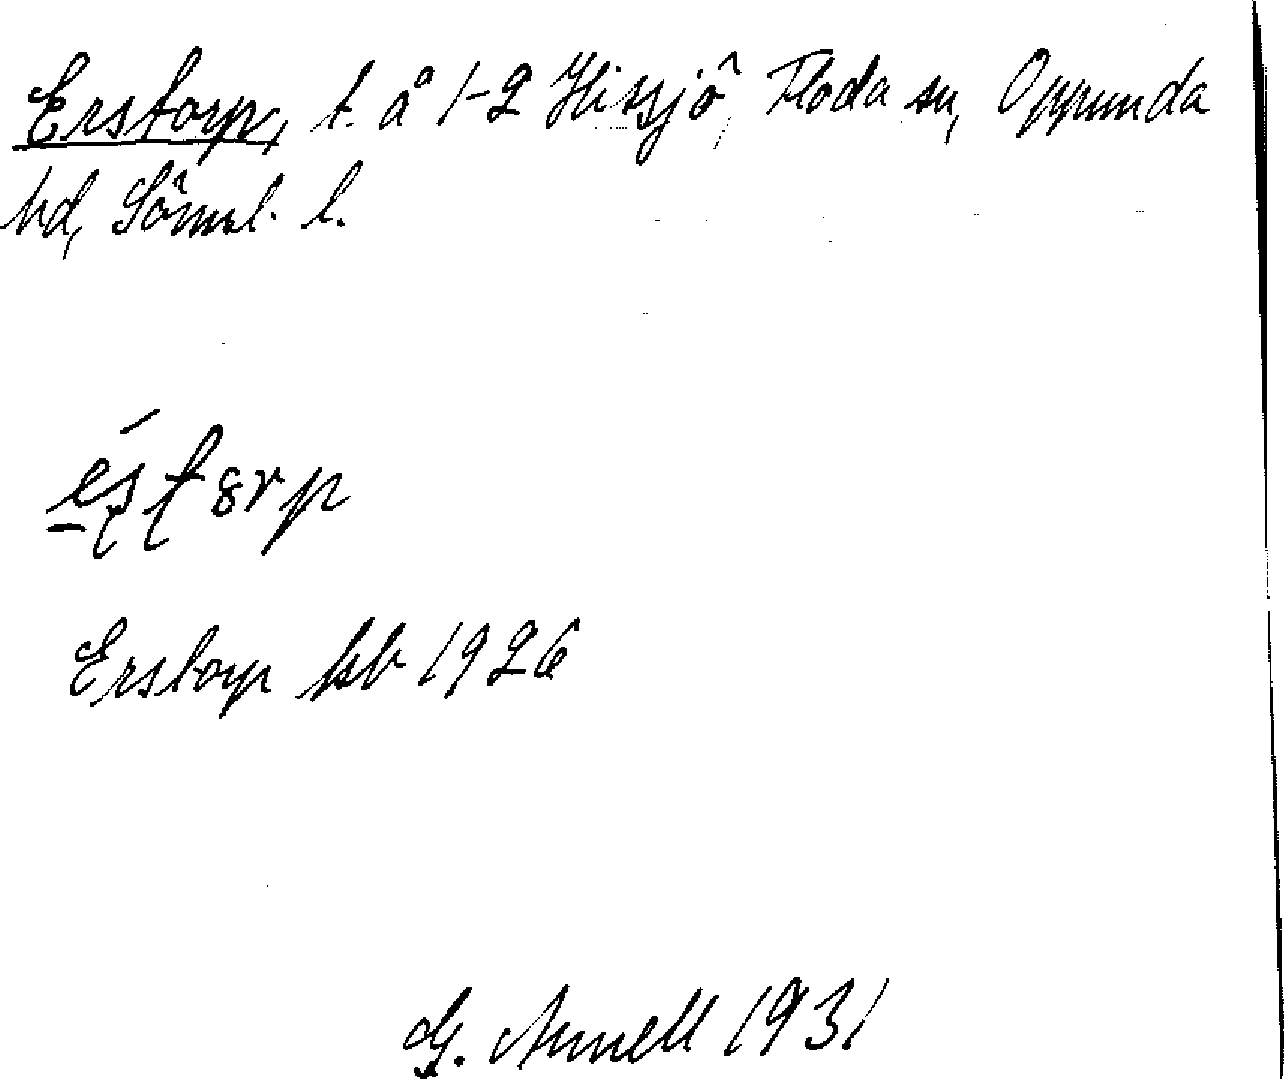 Erstorp, t. å 1-2 Hissjö, Floda sn, Oppunda
hd, Söml. l.
Erstorp kb 1926
G. Annell 1931